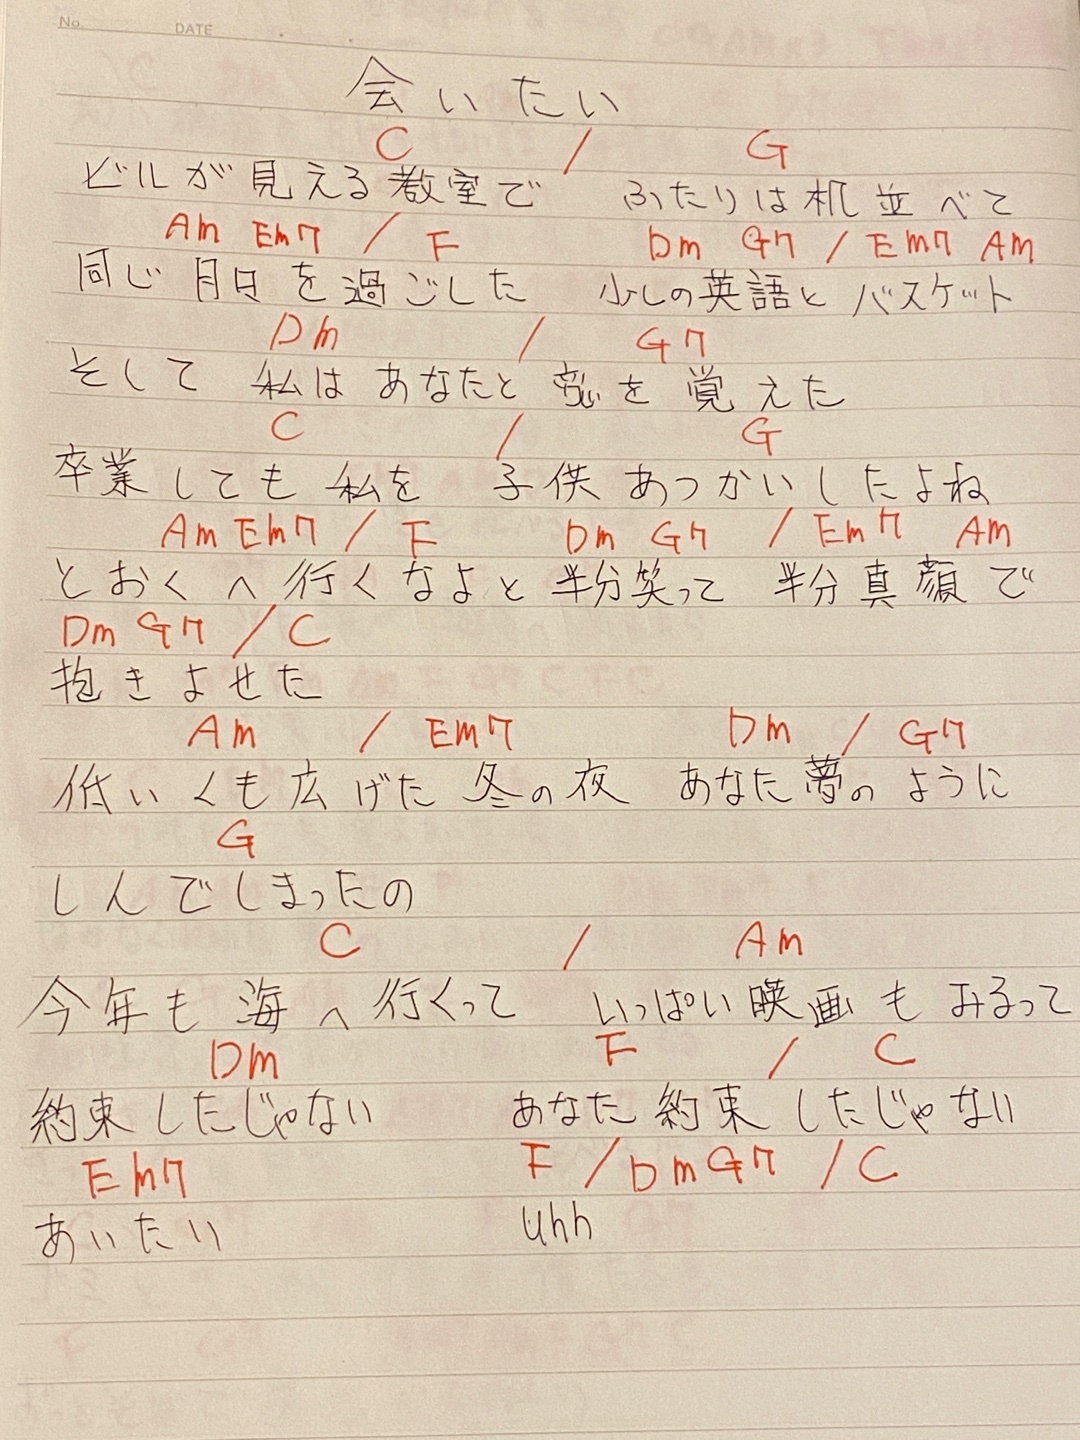 No. DATE
会いたい
C / G
ビルが見える教室で ふたりは机並べて
Am Em7 / F Dm G7 / Em7 Am
同じ月日を過ごした 少しの英語とバスケット
Dm / G7
そして 私はあなたと恋を覚えた
C / G
卒業しても私を 子供あつかいしたよね
Am Em7 / F Dm G7 / Em7 Am
とおくへ行くなよと半分笑って 半分真顔で
Dm G7 / C
抱きよせた
Am / Em7 Dm / G7
低いくも広げた冬の夜 あなた夢のように
G
しんでしまったの
C / Am
今年も海へ行くって いっぱい映画もみるって
Dm F / C
約束したじゃない あなた約束したじゃない
Em7 F / Dm G7 / C
あいたい uhh